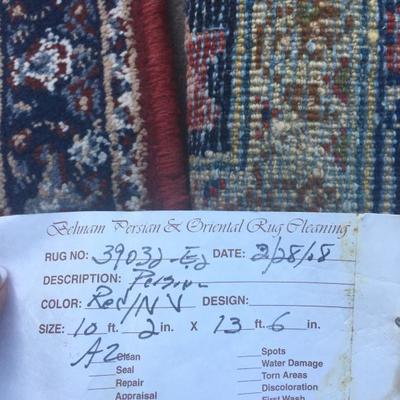 Behnam Persian & Oriental Rug Cleaning
RUG NO: 39032-E2 DATE: 2/28/18
DESCRIPTION: Persian
COLOR: Red/NV DESIGN:
SIZE: 10 ft. 2 in. X 13 ft. 6 in.
A2
Clean Spots
Seal Water Damage
Repair Torn Areas
Appraisal Discoloration
First Wash